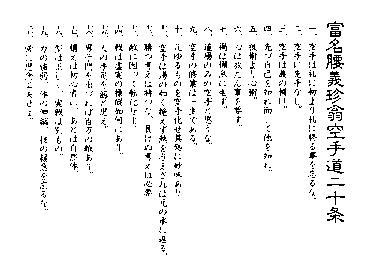 富名腰義珍翁空手道二十条
一、空手は礼に初まり礼に終る事を忘るな。
二、空手に先手なし。
三、空手は義の補け。
四、先づ自己を知れ而して他を知れ。
五、技術より心術。
六、心は放たん事を要す。
七、禍は懈怠に生ず。
八、道場のみの空手と思うな。
九、空手の修業は一生である。
十、凡ゆるものを空手化せ其処に妙味あり。
十一、空手は湯の如く絶えず熱を与えざれば元の水に還る。
十二、勝つ考えは持つな、負けぬ考えは必要。
十三、敵に因って転化せよ。
十四、戦は虚実の操縦如何にあり。
十五、人の手足を劔と思え。
十六、男子門を出づれば百万の敵あり。
十七、構えは初心者に、あとは自然体。
十八、形は正しく、実戦は別もの。
十九、力の強弱、体の伸縮、技の緩急を忘るな。
二十、常に思念工夫せよ。